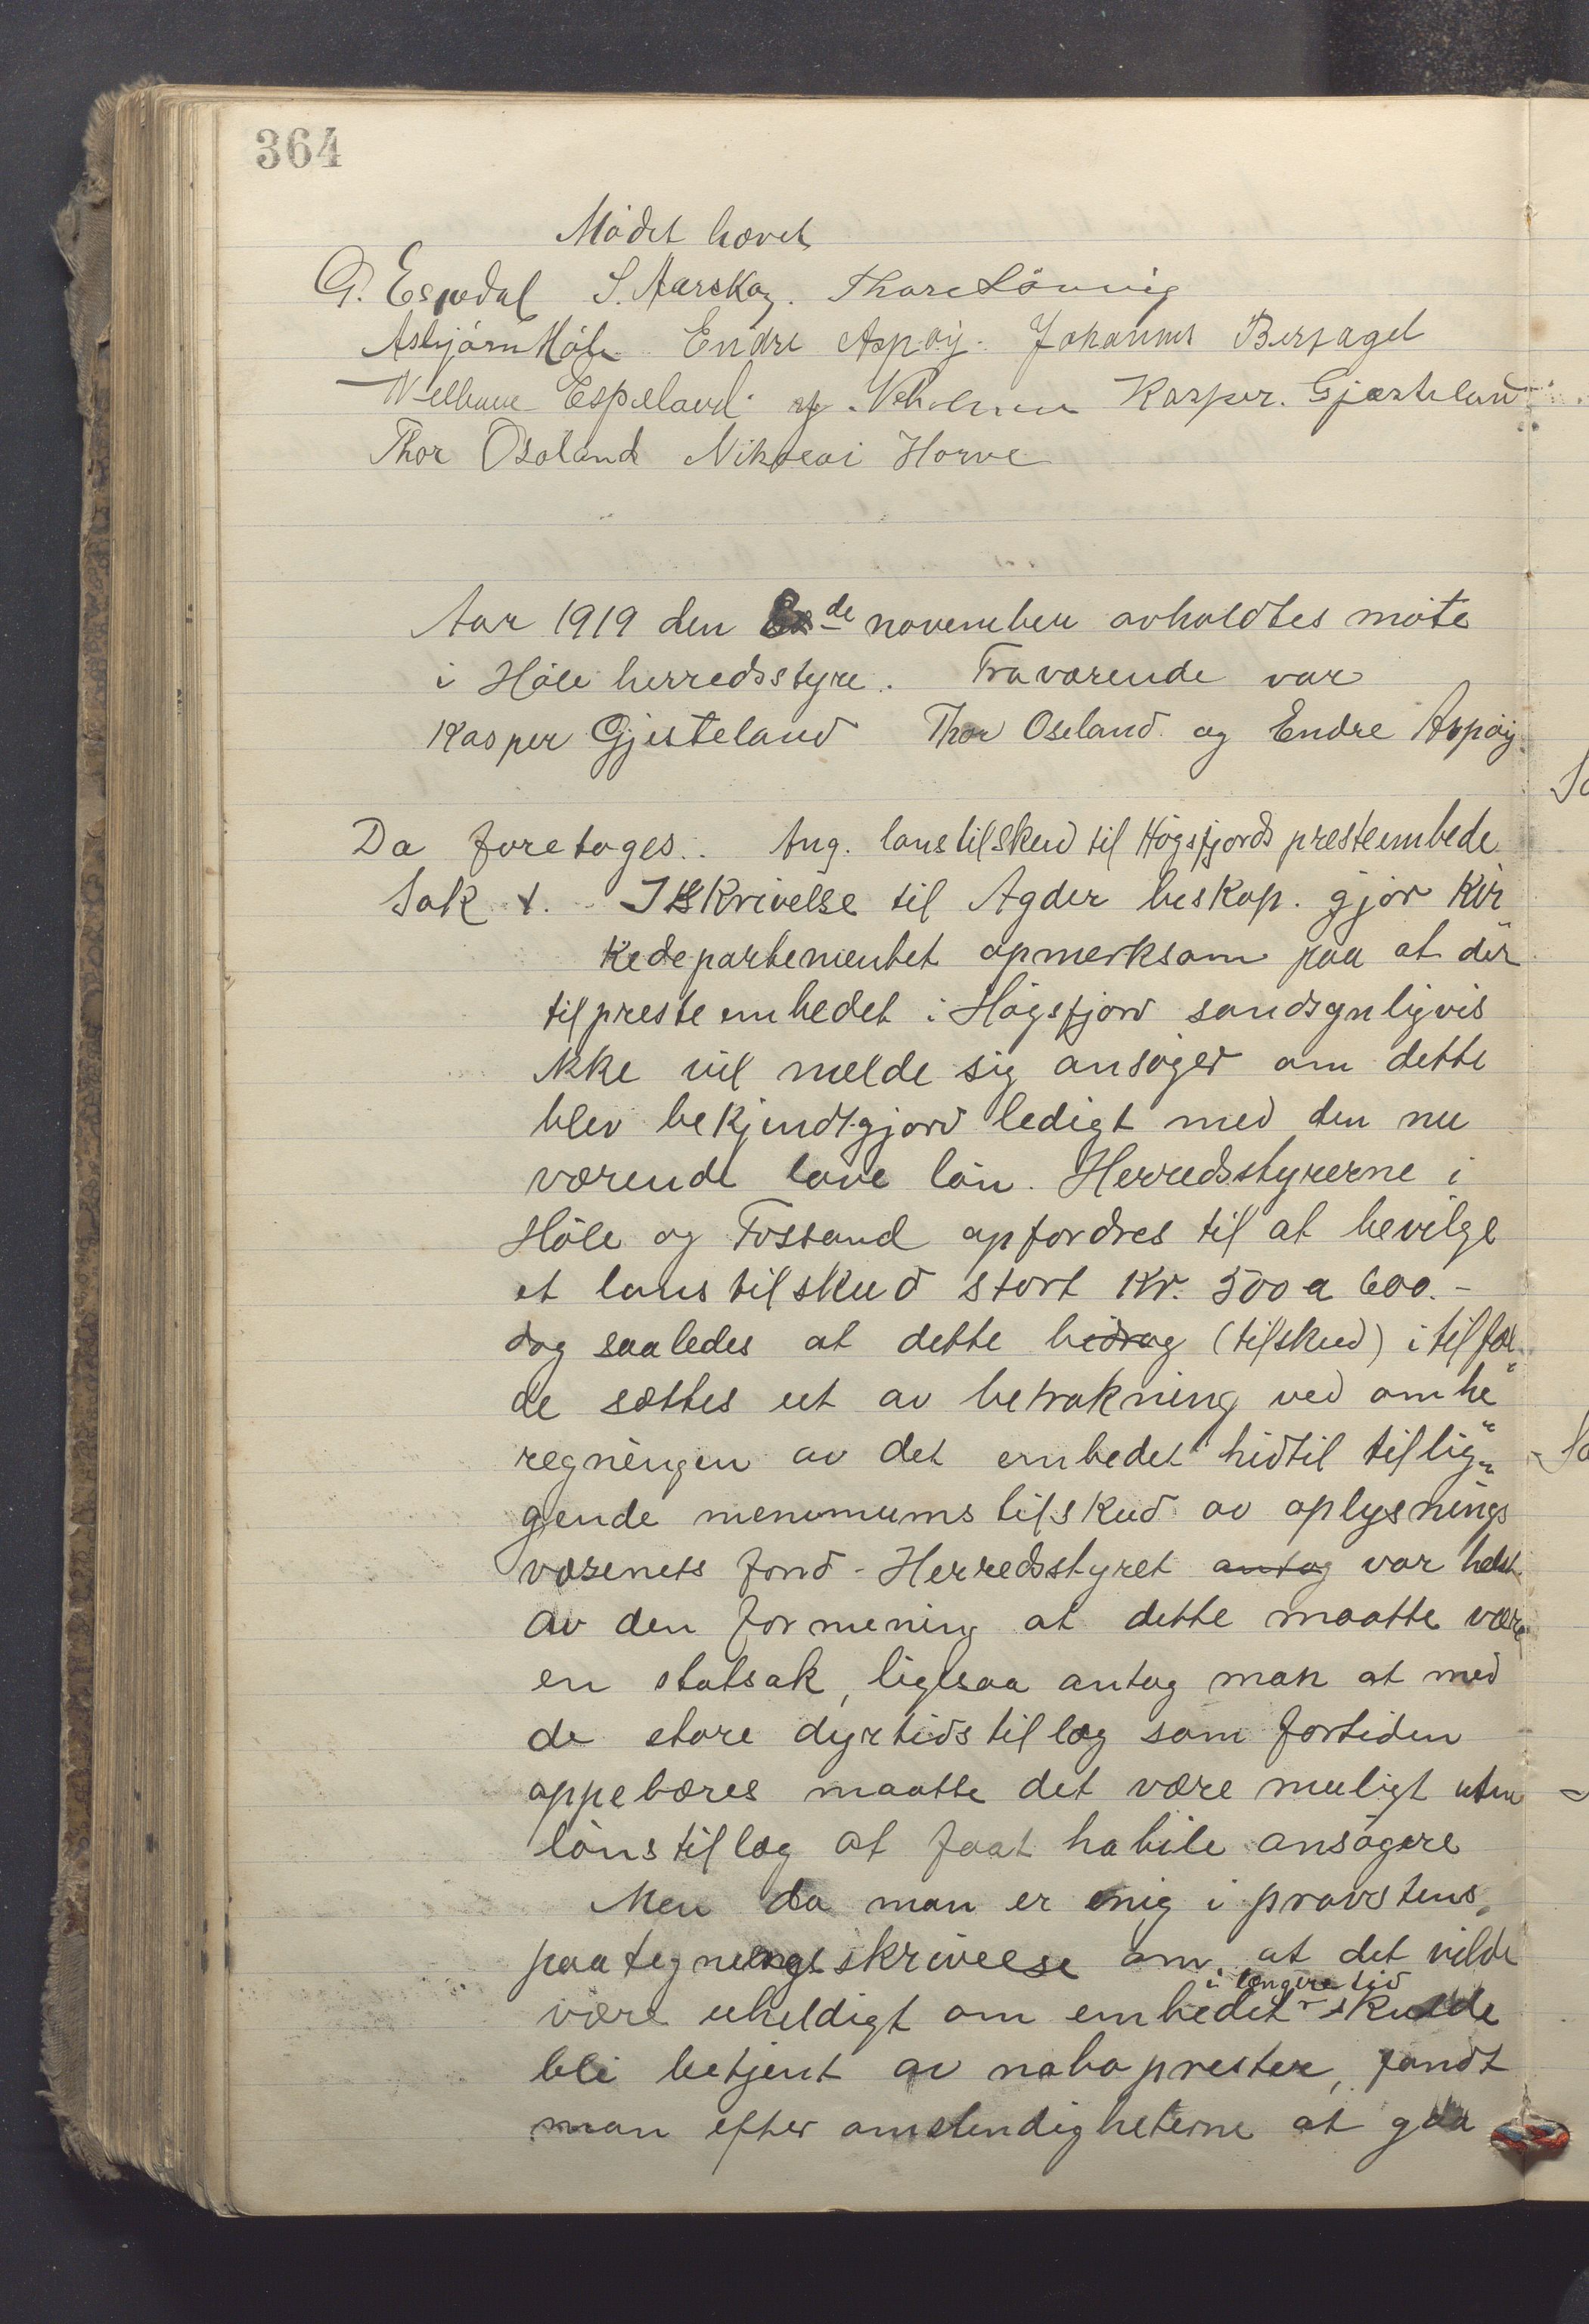 364
Mødet hævet
G. Espedal S. Aarskog. Thore Lönning
Asbjørn Høle Endre Aspøy. Johannes Bersagel
Espeland Kasper. Gjesteland
Thor Osaland Nikolai Horve
Aar 1919 den 8de november avholdtes møte
i Høle herredsstyre. Fraværende var
Kasper Gjesteland Thor Oseland og Endre Aspøy.
Da foretoges.. Ang. lønstilskud til Høgsfjords presteembede
Sak 1. I skrivelse til Agder biskop. gjør Kir„
kedepartementet opmerksom paa at der
til presteembedet i Høgsfjord sandsynligvis
ikke vil melde sig ansøger om dette
blev bekjendtgjord ledigt med den nu
værende lave løn. Herredsstyrerne i
Høle og Fossand opfordres til at bevilge
et lønstilskud stort Kr. 500 a 600.-
dog saaledes at dette bidrag (tilskud) i tilfæl„
de sættes ut av betrakning ved ombe„
regningen av det embedet hidtil tillig„
gende menimumstilskud av oplysnings
væsenets fond - Herredsstyret antog var helst
av den formening at dette maatte være
en statsak, ligesaa antog man at med
de store dyrtidstillæg som fortiden
oppebæres maatte det være muligt uten
lønstillæg at faat habile ansøgere
Men da man er enig i provstens
paategningsskrivelse om, at det vilde
i længere tid
være uheldigt om embedet skulde
bli betjent av naboprester, fandt
man efter omstendigheterne at gaa